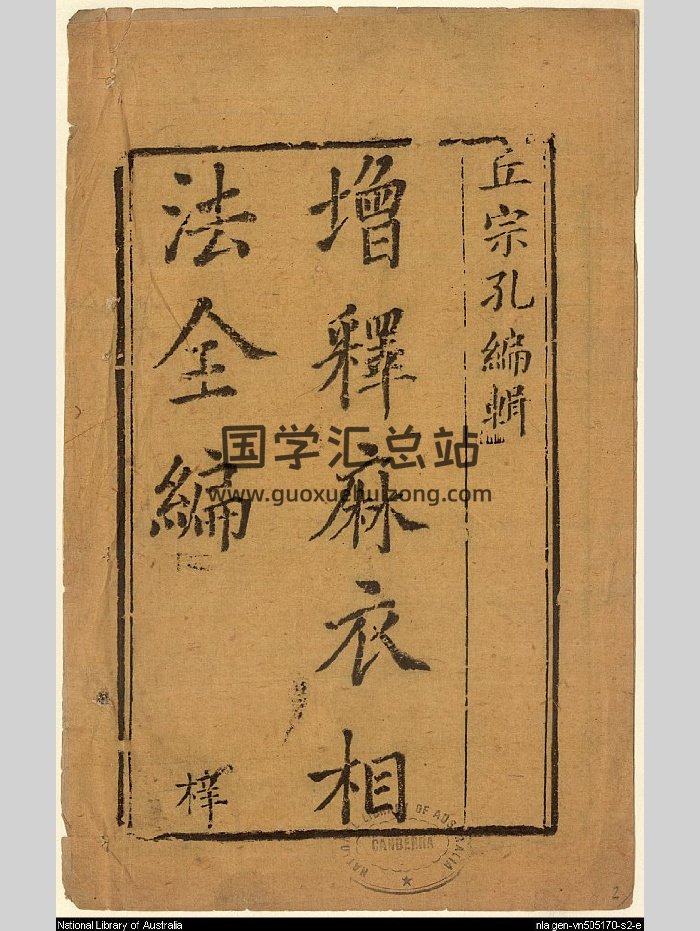 丘宗孔編輯
增釋麻衣相
法全編
梓
国学汇总站
www.guoxuehuizong.com
NATIONAL LIBRARY OF AUSTRALIA
CANBERRA
2
National Library of Australia
nla.gen-vn505170-s2-e